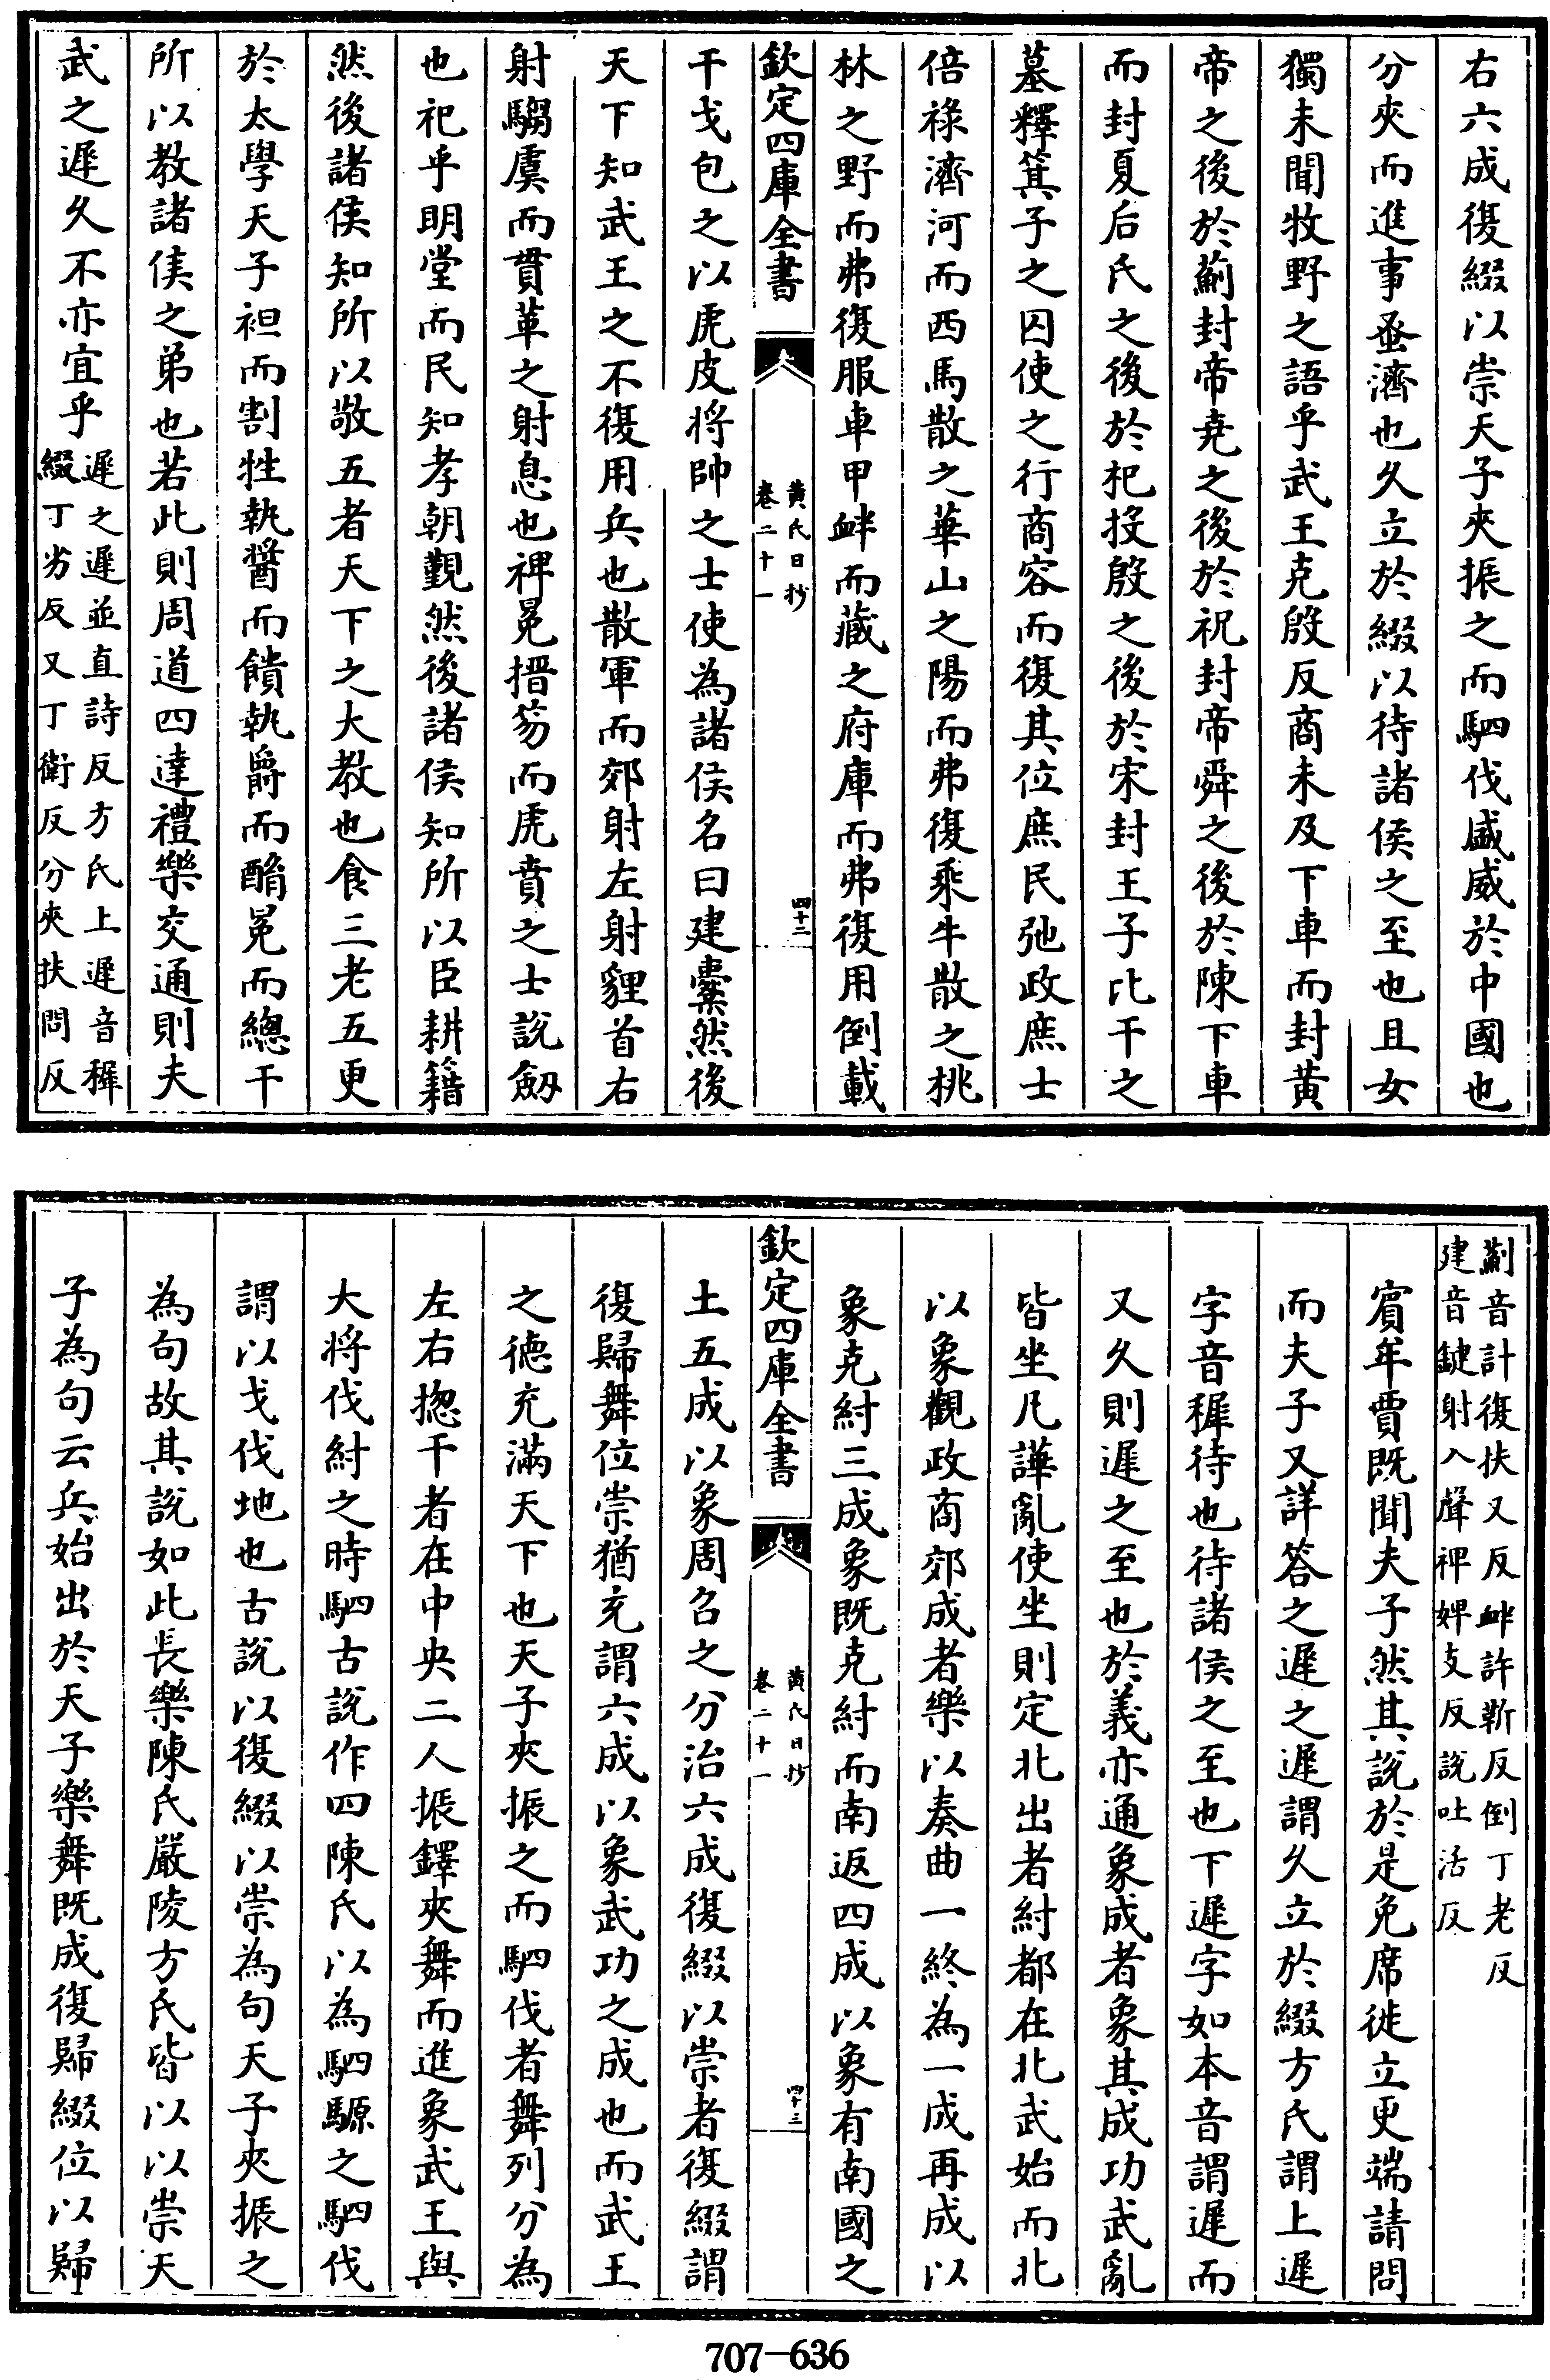 右六成復綴以崇天子夾振之而駟伐盛威於中國也
分夾而進事蚤濟也久立於綴以待諸侯之至也且女
獨未聞牧野之語乎武王克殷反商未及下車而封黃
帝之後於薊封帝堯之後於祝封帝舜之後於陳下車
而封夏后氏之後於杞投殷之後於宋封王子比干之
墓釋箕子之囚使之行商容而復其位庶民弛政庶士
倍祿濟河而西馬散之華山之陽而弗復乘牛散之桃
林之野而弗復服車甲衅而藏之府庫而弗復用倒載
欽定四庫全書
黃氏日抄
卷二十一
四十二
干戈包之以虎皮將帥之士使為諸侯名曰建櫜然後
天下知武王之不復用兵也散軍而郊射左射貍首右
射騶虞而貫革之射息也裨冕搢笏而虎賁之士說劔
也祀乎明堂而民知孝朝覲然後諸侯知所以臣耕籍
然後諸侯知所以敬五者天下之大教也食三老五更
於太學天子袒而割牲執醬而饋執爵而酳冕而總干
所以教諸侯之弟也若此則周道四達禮樂交通則夫
武之遲久不亦宜乎
遲之遲並直詩反方氏上遲音穉
綴丁劣反又丁衛反分夾扶問反
薊音計復扶又反衅許靳反倒丁老反
建音鍵射入聲裨婢支反說吐活反
賓年賈既聞夫子然其說於是免席徙立更端請問
而夫子又詳答之遲之遲謂久立於綴方氏謂上遲
字音穉待也待諸侯之至也下遲字如本音謂遲而
又久則遲之至也於義亦通象成者象其成功武亂
皆坐凡譁亂使坐則定北出者紂都在北武始而北
以象觀政商郊成者樂以奏曲一終為一成再成以
象克紂三成象既克紂而南返四成以象有南國之
欽定四庫全書
黃氏日抄
卷二十一
四十三
土五成以象周召之分治六成復綴以崇者復綴謂
復歸舞位崇猶充謂六成以象武功之成也而武王
之德充滿天下也天子夾振之而駟伐者舞列分為
左右揔干者在中央二人振鐸夾舞而進象武王與
大將伐紂之時駟古說作四陳氏以為駟騵之駟伐
謂以戈伐地也古說以復綴以崇為句天子夾振之
為句故其說如此長樂陳氏嚴陵方氏皆以以崇天
子為句云兵始出於天子樂舞既成復歸綴位以歸
707-636